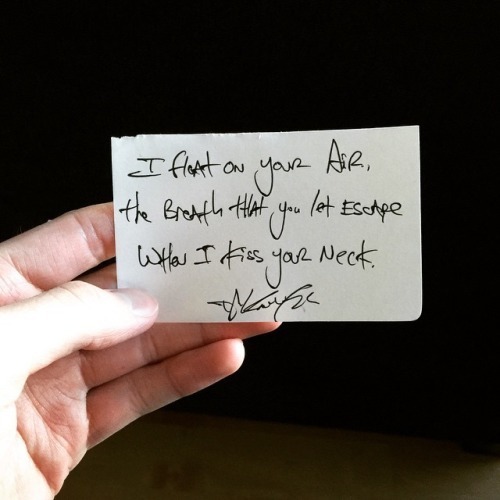 I float on your Air,
the Breath that you let Escape
When I kiss your Neck.